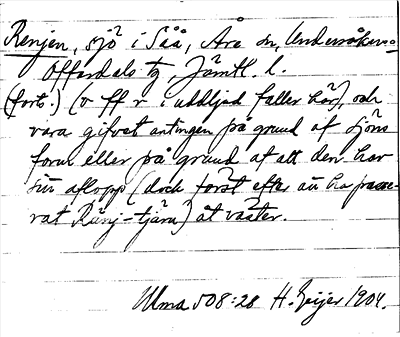 Renjen, sjö i Såå, Åre sn, Undersåkers o
Offerdals tg, Jämtl. l.
(forts.) (v ff r i uddljud faller här), och
vara gifvet antingen på grund af sjöns
form eller på grund af att den har
sin aflopp (doch först efter att ha passe-
rat Ränj-tjärn) åt väster.
Ulma 508:28 H. Geijer 1904.